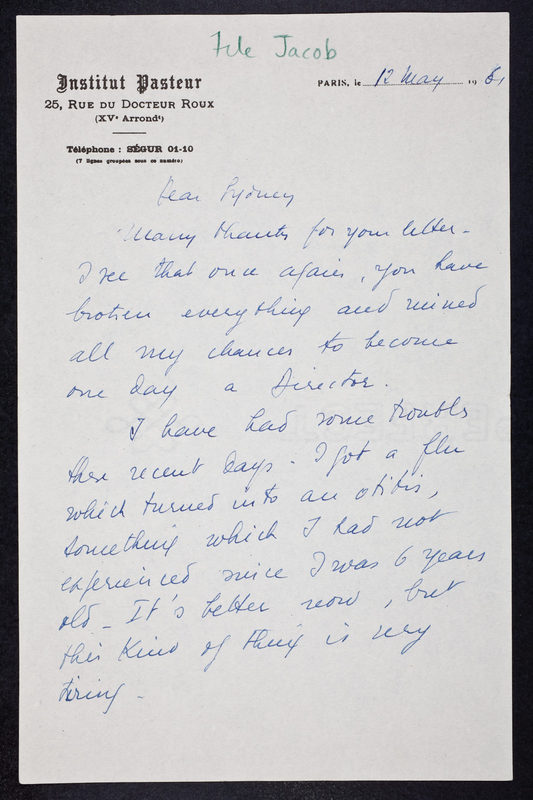 File Jacob
Institut Pasteur
25, Rue du Docteur Roux
(XVe Arrondt)
Téléphone : SÉGUR 01-10
(7 lignes groupées sous ce numéro)
PARIS, le 12 May 1961
Dear Sydney
Many thanks for your letter.
I see that once again, you have
broken everything and ruined
all my chances to become
one day a Director.
I have had some troubles
these recent days. I got a flu
which turned into an otitis,
something which I had not
experienced since I was 6 years
old. It's better now, but
this kind of thing is very
tiring.